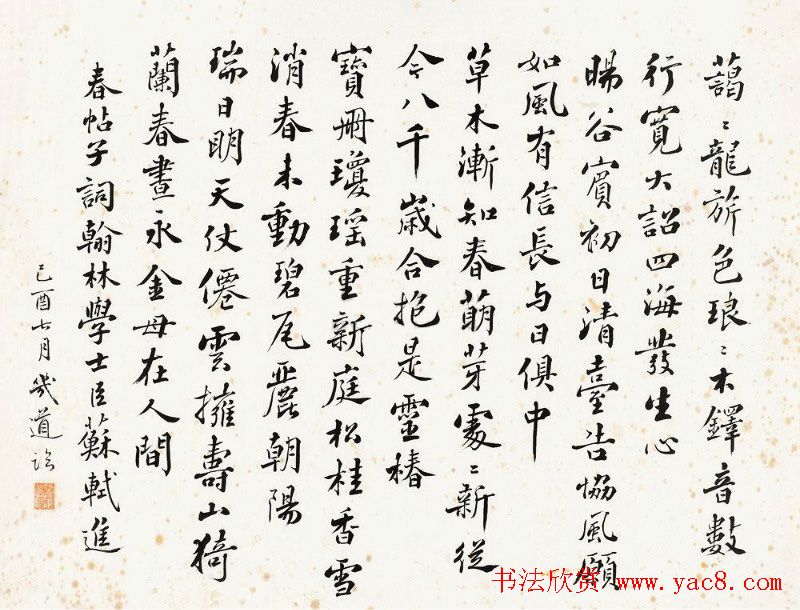 藹〻龍旂色琅〻木鐸音數
行寬大詔四海發生心
暘谷賓初日清臺告協風願
如風有信長与日俱中
草木漸知春萌芽處〻新從
今八千歲合抱是靈椿
寶冊瓊瑤重新庭松桂香雪
消春未動碧瓦麗朝陽
瑞日明天仗僊雲擁壽山猗
蘭春晝永金母在人間
春帖子詞翰林學士臣蘇軾進
己酉七月幾道臨
书法欣赏www.yac8.com